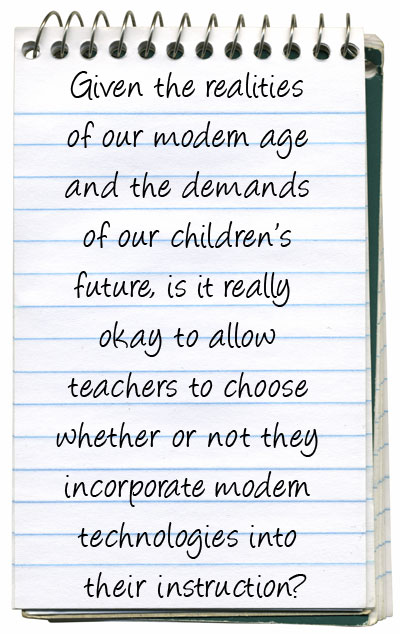 Given the realities
of our modern age
and the demands
of our children's
future, is it really
okay to allow
teachers to choose
whether or not they
incorporate modern
technologies into
their instruction?